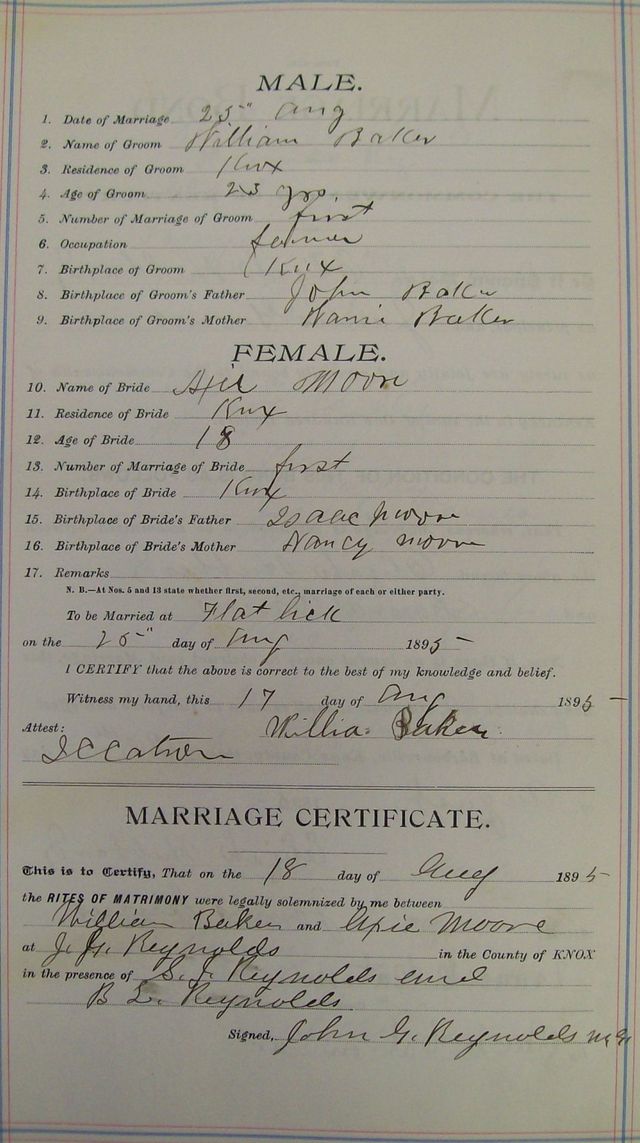 MALE.
1. Date of Marriage 25" Aug
2. Name of Groom William Baker
3. Residence of Groom Knox
4. Age of Groom 23 yrs.
5. Number of Marriage of Groom first
6. Occupation farmer
7. Birthplace of Groom Knox
8. Birthplace of Groom's Father John Baker
9. Birthplace of Groom's Mother Baker
FEMALE.
10. Name of Bride Moore
11. Residence of Bride Knox
12. Age of Bride 18
13. Number of Marriage of Bride first
14. Birthplace of Bride Knox
15. Birthplace of Bride's Father Isaac Moore
16. Birthplace of Bride's Mother Nancy Moore
17. Remarks
N. B.—At Nos. 5 and 13 state whether first, second, etc., marriage of each or either party.
To be Married at Flat lick
on the 25" day of Aug 1895
I CERTIFY that the above is correct to the best of my knowledge and belief.
Witness my hand, this 17 day of Aug 1895
Attest: Baker
MARRIAGE CERTIFICATE.
This is to Certify, That on the 18 day of Aug 1895
the RITES OF MATRIMONY were legally solemnized by me between
William Baker and Axie Moore
at Reynolds in the County of KNOX
in the presence of S. J. Reynolds and
B L. Reynolds
Signed, John G. Reynolds